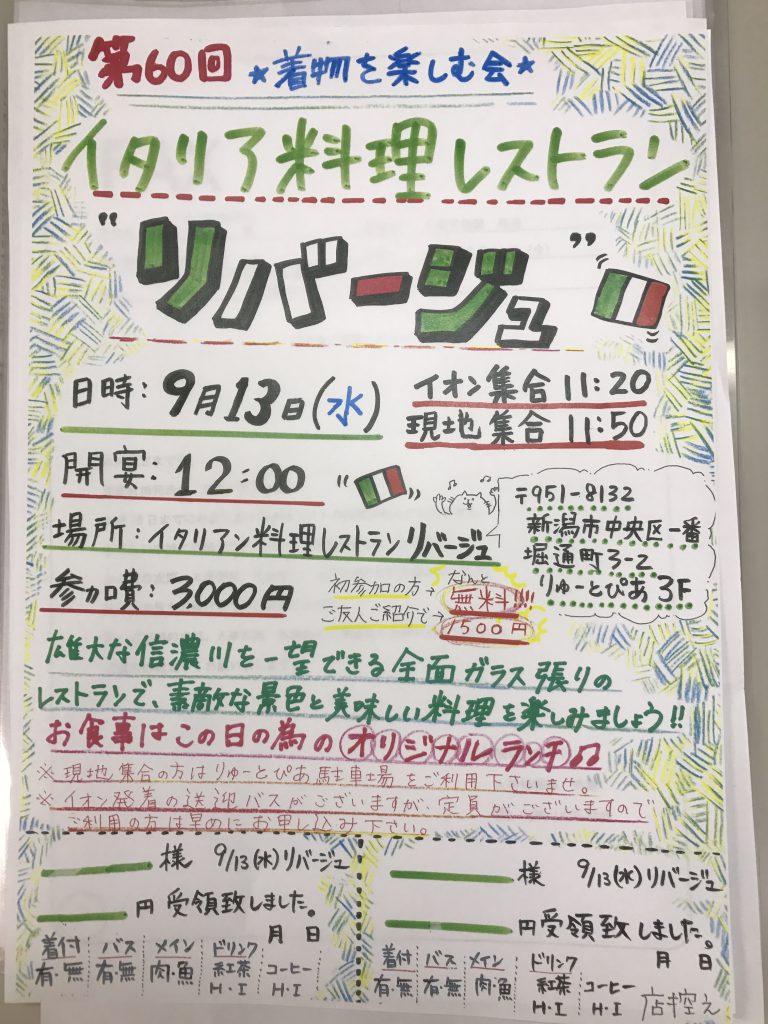 第60回 ★着物を楽しむ会★
イタリア料理レストラン
"リバージュ"
日時：9月13日(水)
イオン集合 11：20
現地集合 11：50
開宴：12：00
場所：イタリアン料理レストランリバージュ
〒951-8132
新潟市中央区一番
堀通町3-2
りゅーとぴあ 3F
参加費：3,000円
初参加の方→ なんと 無料!!!
ご友人ご紹介で→ 1500円
雄大な信濃川を一望できる全面ガラス張りの
レストランで、素敵な景色と美味しい料理を楽しみましょう!!
お食事はこの日の為のオリジナルランチ♫
※現地集合の方はりゅーとぴあ駐車場をご利用下さいませ。
※イオン発着の送迎バスがございますが、定員がございますので
ご利用の方は早めにお申し込み下さい。
様 9/13(水)リバージュ
円受領致しました。
月 日
着付 バス メイン ドリンク
有・無 有・無 肉・魚 紅茶 コーヒー
H・I H・I
様 9/13(水)リバージュ
円受領致しました。
月 日
着付 バス メイン ドリンク
有・無 有・無 肉・魚 紅茶 コーヒー
H・I H・I
店控え